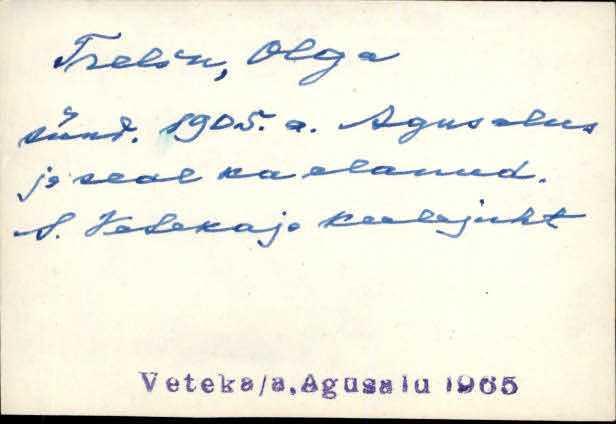 Trelin, Olga
sünd. 1905. a. Agusalus
ja seal ka elanud.
S. Veteka ja keelejuht
Veteka/a, Agusalu 1965